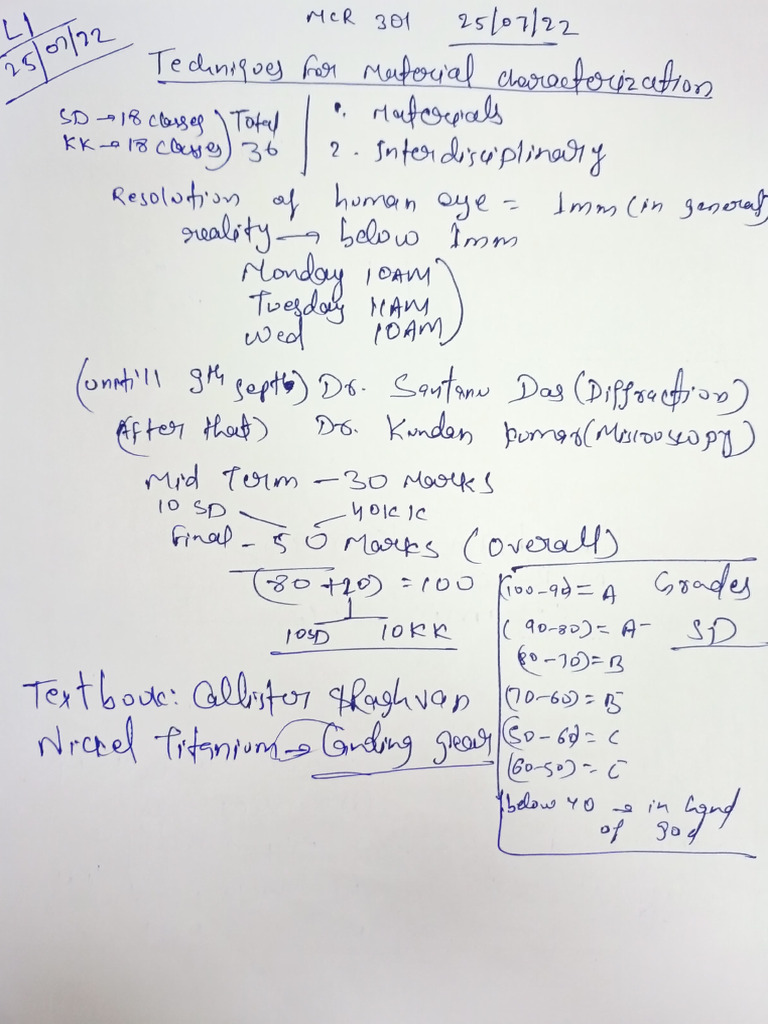 L1
25/07/22
MCR 301 25/07/22
Techniques for Material characterization
SD → 18 classes
KK → 18 classes
Total
36
1. Materials
2. Interdisciplinary
Resolution of human eye = 1mm (in general)
reality → below 1mm
Monday 10AM
Tuesday 11AM
Wed 10AM
(Untill 9th sept) Dr. Santanu Das (Diffraction)
(After that) Dr. Kundan Kumar (Microscopy)
Mid Term - 30 Marks
10 SD 40 KK
final - 50 Marks (overall)
(80 + 20) = 100
10SD 10KK
Grades
SD
(100-90) = A
(90-80) = A-
(80-70) = B
(70-60) = B-
(50-60) = C
(60-50) = C-
below 40 → in hand
of god
Textbook: Callister & Raghvan
Nickel Titanium → Landing gear